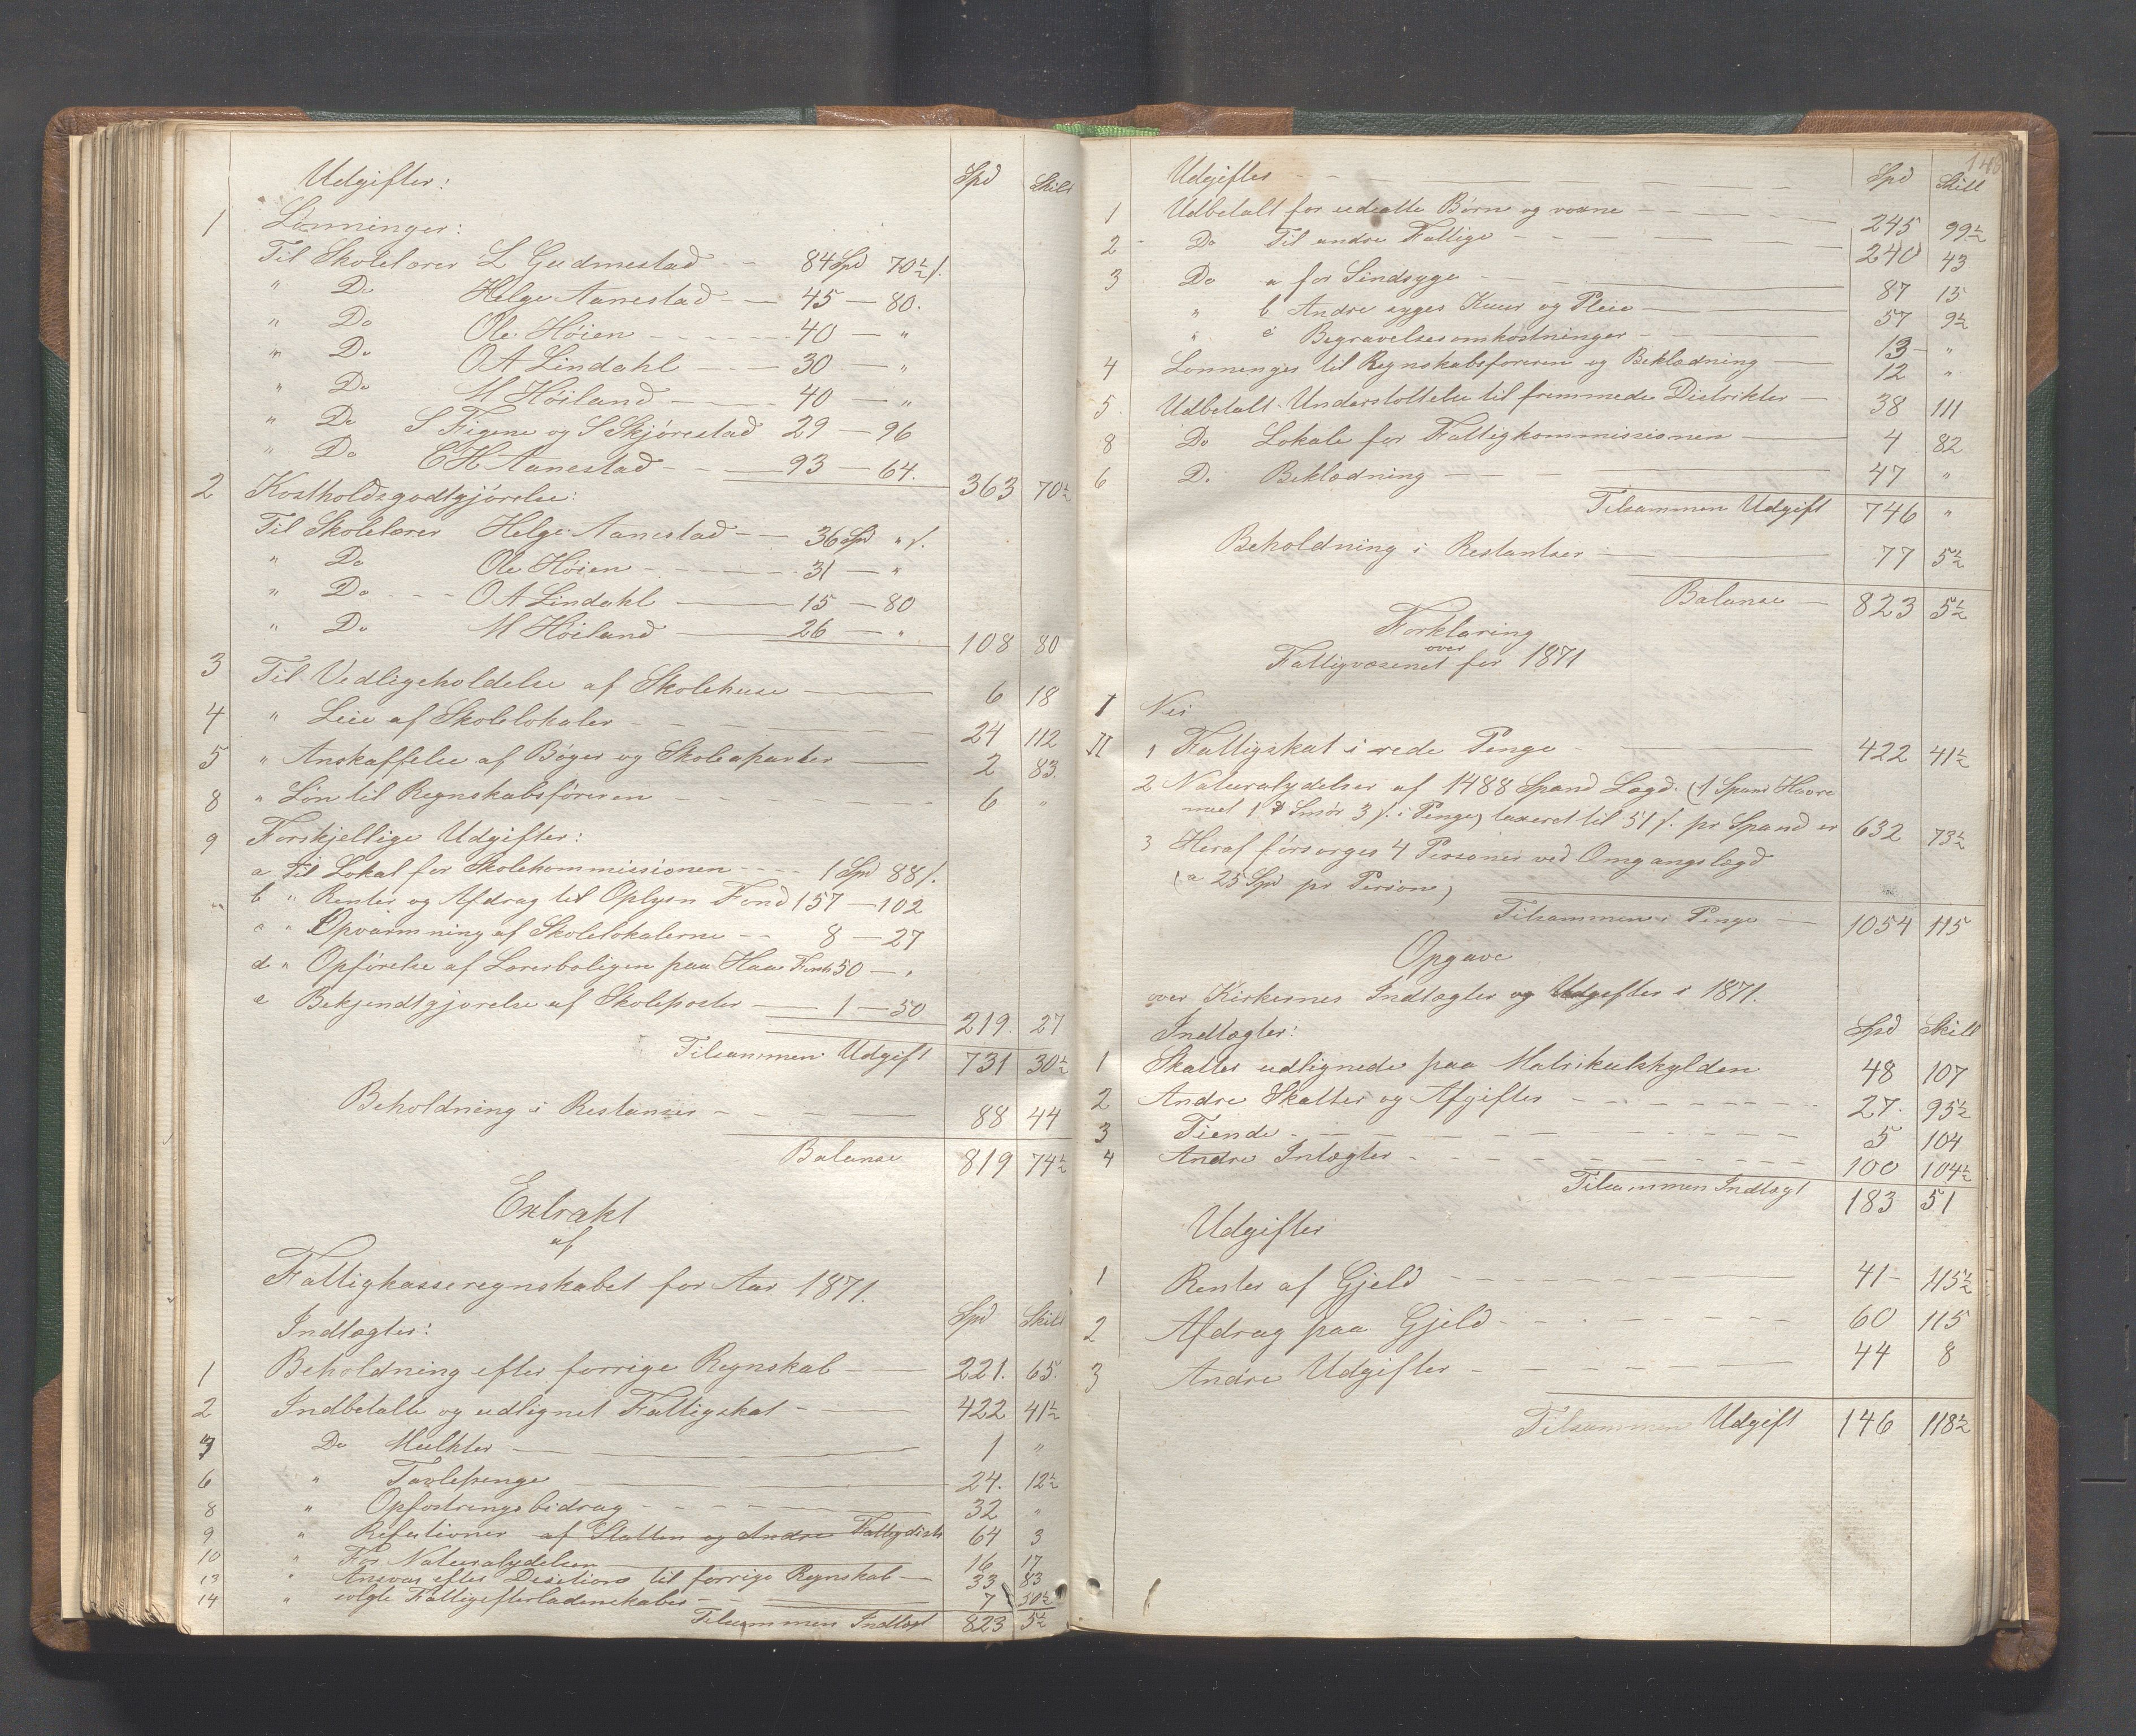 Udgifter: Spd Skill
1 Lønninger:
Til Skolelærer L Gudmestad 84 Spd 70½ /.
" Do Helge Aanestad 45 — 80.
" Do Ole Høien 40 — "
" Do O A Lindahl 30 — "
" Do M Høiland 40 — "
" Do S Figene og S Skjørestad 29 — 96
" Do C H Aanestad 93 — 64. 363 70½
2 Kostholdsgodtgjørelse:
Til Skolelærer Helge Aanestad 36 Spd " /.
" Do Ole Høien 31 — "
" Do O A Lindahl 15 — 80
" Do M Høiland 26 — " 108 80
3 Til Vedligeholdelse af Skolehuse 6 18
4 " Leie af Skolelokaler 24 112
5 " Anskaffelse af Bøger og Skoleaparter 2 83.
8 " Løn til Regnskabsføreren 6 "
9 Forskjellige Udgifter:
a Til Lokal for Skolekommissionen 1 Spd 88 /.
b " Renter og Afdrag til Oplysn Fond 157 — 102
c " Opvarmning af Skolelokalerne 8 — 27
d " Opførelse af Lærerboligen paa Haa 50 — "
e Bekjendtgjørelse af Skoleposter 1 — 50
219. 27
Tilsammen Udgift 731 30½
Beholdning i Restanser 88 44
Balanse 819 74½
Extrakt
af
Fattigkasseregnskabet for Aar 1871.
Indtægter: Spd Skill
1 Beholdning efter forrige Regnskab 221. 65.
2 Indbetalte og udlignet Fattigskat 422 41½
Do Mulkter 1 "
6 " Tavlepenge 24. 12½
8 " Opfostringsbidrag 32 "
9 " Refutioner af Statten og Andre Fattigdistr 64 3
10 " For Naturalydelser 16 17
13 " Ansvar efter Desition til forrige Regnskab 33 83
14 " solgte Fattigefterladenskaber 7 50½
Tilsammen Indtægt 823 5½
140
Udgifter Spd Skill
1 Udbetalt for udsatte Børn og voxne 245 99½
2 Do Til andre Fattige 240 43
3 Do a for Sindsyge 87 15
" b Andre syges Kuur og Pleie 57 9½
" c Begravelsesomkostninger 13 "
4 Lønninger til Regnskabsføreren og Beklædning 12 "
5. Udbetalt Understøttelse til fremmede Distrikter 38 111
8 Do Lokale for Fattigkommissionen 4 82
6 Do Beklædning 47 "
Tilsammen Udgift 746 "
Beholdning i Restantser 77 5½
Balanse 823 5½
Forklaring
over
Fattigvæsenet for 1871
I Nei
II 1 Fattigskat i rede Penge 422 41½
2 Naturalydelser af 1488 Spand Lægd. (1 Spand Havre
med 1 ℔ Smør 3 /. i Penge) taxeret til 51 /. pr Spand er 632 73½
3 Heraf forsørges 4 Personer ved Omgangslægd
(a 25 Spd pr Person)
Tilsammen i Penge 1054 115
Opgave
over Kirkernes Indtægter og Udgifter i 1871.
Indtægter: Spd Skill
1 Skatter udlignede paa Matrikulskylden 48 107
2 Andre Skatter og Afgifter 27. 95½
3 Tiende 5 104
4 Andre Intægter 100 104½
Tilsammen Indtægt 183 51
Udgifter
1 Renter af Gjeld 41 115½
2 Afdrag paa Gjeld 60 115
3 Andre Udgifter 44 8
Tilsammen Udgift 146 118½